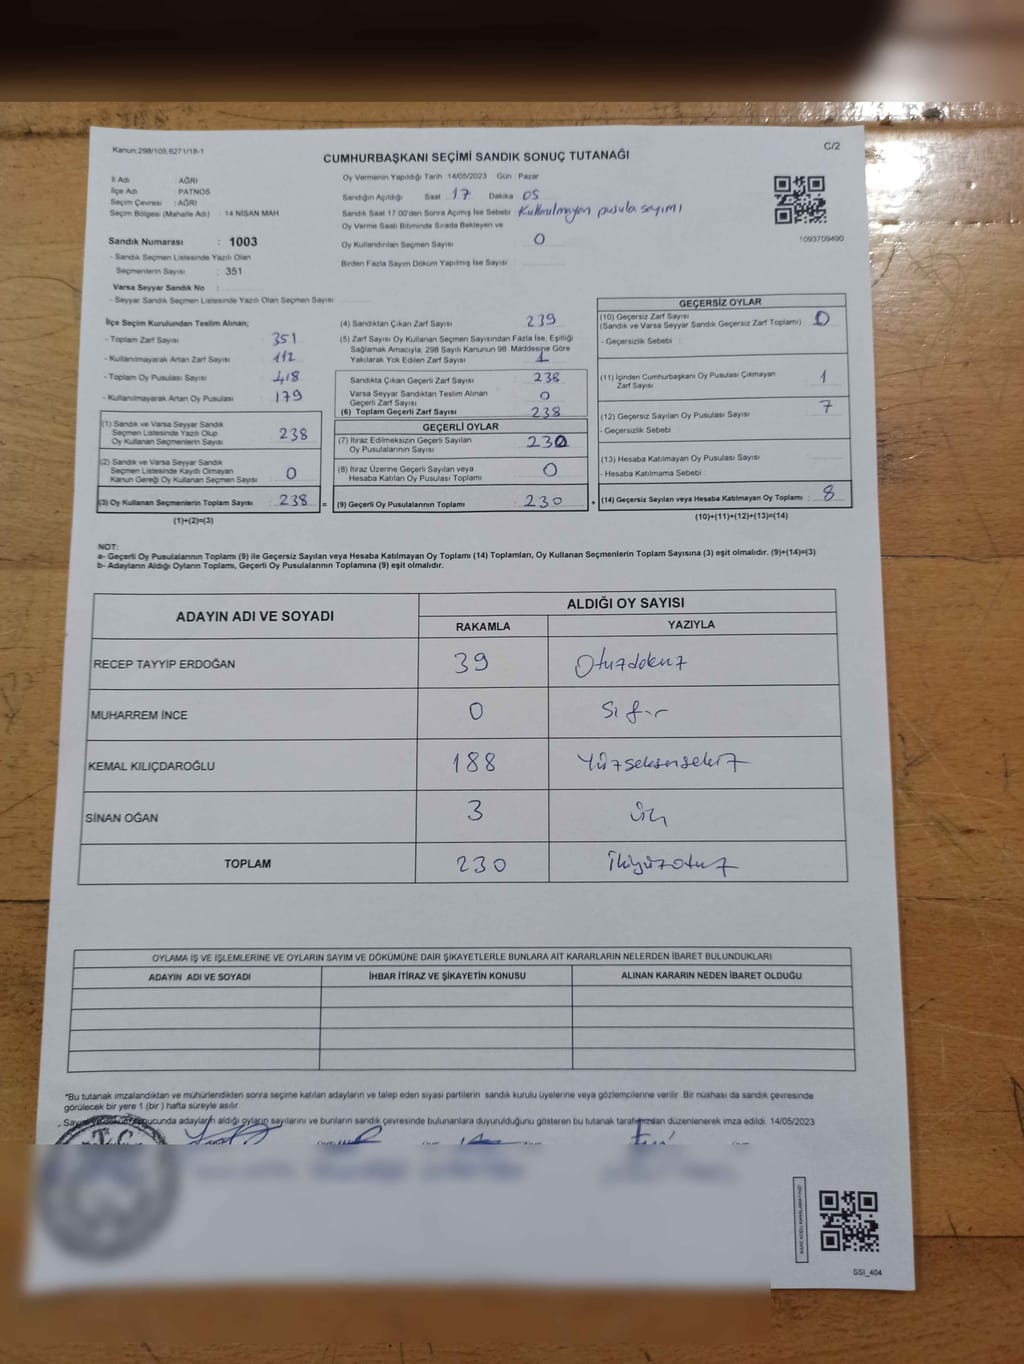 Kanun:298/105,6271/18-1
C/2
CUMHURBAŞKANI SEÇİMİ SANDIK SONUÇ TUTANAĞI
İl Adı : AĞRI
İlçe Adı : PATNOS
Seçim Çevresi : AĞRI
Seçim Bölgesi (Mahalle Adı) : 14 NİSAN MAH
Sandık Numarası : 1003
- Sandık Seçmen Listesinde Yazılı Olan
Seçmenlerin Sayısı : 351
Varsa Seyyar Sandık No :
- Seyyar Sandık Seçmen Listesinde Yazılı Olan Seçmen Sayısı
Oy Vermenin Yapıldığı Tarih 14/05/2023 Gün : Pazar
Sandığın Açıldığı Saat 17 Dakika 05
Sandık Saat 17 00'den Sonra Açımış İse Sebebi Kullanılmayan pusula sayımı
Oy Verme Saati Bitiminde Sırada Bekleyen ve
Oy Kullandırılan Seçmen Sayısı 0
Birden Fazla Sayım Döküm Yapılmış İse Sayısı
1093709490
İlçe Seçim Kurulundan Teslim Alınan;
- Toplam Zarf Sayısı 351
- Kullanılmayarak Artan Zarf Sayısı 112
- Toplam Oy Pusulası Sayısı 418
- Kullanılmayarak Artan Oy Pusulası 179
(1) Sandık ve Varsa Seyyar Sandık
Seçmen Listesinde Yazılı Olup
Oy Kullanan Seçmenlerin Sayısı 238
(2) Sandık ve Varsa Seyyar Sandık
Seçmen Listesinde Kayıtlı Olmayan
Kanun Gereği Oy Kullanan Seçmen Sayısı 0
(3) Oy Kullanan Seçmenlerin Toplam Sayısı : 238 =
(1)+(2)=(3)
(4) Sandıktan Çıkan Zarf Sayısı 239
(5) Zarf Sayısı Oy Kullanan Seçmen Sayısından Fazla İse, Eşitliği
Sağlamak Amacıyla, 298 Sayılı Kanunun 98. Maddesine Göre
Yakılarak Yok Edilen Zarf Sayısı 1
Sandıkta Çıkan Geçerli Zarf Sayısı 238
Varsa Seyyar Sandıktan Teslim Alınan
Geçerli Zarf Sayısı 0
(6) Toplam Geçerli Zarf Sayısı 238
GEÇERLİ OYLAR
(7) İtiraz Edilmeksizin Geçerli Sayılan
Oy Pusulalarının Sayısı 230
(8) İtiraz Üzerine Geçerli Sayılan veya
Hesaba Katılan Oy Pusulası Toplamı 0
(9) Geçerli Oy Pusulalarının Toplamı : 230 +
GEÇERSİZ OYLAR
(10) Geçersiz Zarf Sayısı
(Sandık ve Varsa Seyyar Sandık Geçersiz Zarf Toplamı) 0
- Geçersizlik Sebebi
(11) İçinden Cumhurbaşkanı Oy Pusulası Çıkmayan
Zarf Sayısı 1
(12) Geçersiz Sayılan Oy Pusulası Sayısı 7
- Geçersizlik Sebebi
(13) Hesaba Katılmayan Oy Pusulası Sayısı
- Hesaba Katılmama Sebebi
(14) Geçersiz Sayılan veya Hesaba Katılmayan Oy Toplamı : 8
(10)+(11)+(12)+(13)=(14)
NOT:
a- Geçerli Oy Pusulalarının Toplamı (9) ile Geçersiz Sayılan veya Hesaba Katılmayan Oy Toplamı (14) Toplamları, Oy Kullanan Seçmenlerin Toplam Sayısına (3) eşit olmalıdır. (9)+(14)=(3)
b- Adayların Aldığı Oyların Toplamı, Geçerli Oy Pusulalarının Toplamına (9) eşit olmalıdır.
ADAYIN ADI VE SOYADI
ALDIĞI OY SAYISI
RAKAMLA YAZIYLA
RECEP TAYYİP ERDOĞAN 39 Otuzdokuz
MUHARREM İNCE 0 Sıfır
KEMAL KILIÇDAROĞLU 188 Yüzseksensekiz
SİNAN OĞAN 3 Üç
TOPLAM 230 İkiyüzotuz
OYLAMA İŞ VE İŞLEMLERİNE VE OYLARIN SAYIM VE DÖKÜMÜNE DAİR ŞİKAYETLERLE BUNLARA AİT KARARLARIN NELERDEN İBARET BULUNDUKLARI
ADAYIN ADI VE SOYADI İHBAR İTİRAZ VE ŞİKAYETİN KONUSU ALINAN KARARIN NEDEN İBARET OLDUĞU
*Bu tutanak imzalandıktan ve mühürlendikten sonra seçime katılan adayların ve talep eden siyasi partilerin sandık kurulu üyelerine veya gözlemcilerine verilir. Bir nüshası da sandık çevresinde
görülecek bir yere 1 (bir) hafta süreyle asılır.
adayların aldığı oyların sayılarını ve bunların sandık çevresinde bulunanlara duyurulduğunu gösteren bu tutanak tarafımızdan düzenlenerek imza edildi. 14/05/2023
T.C.
SSI_404